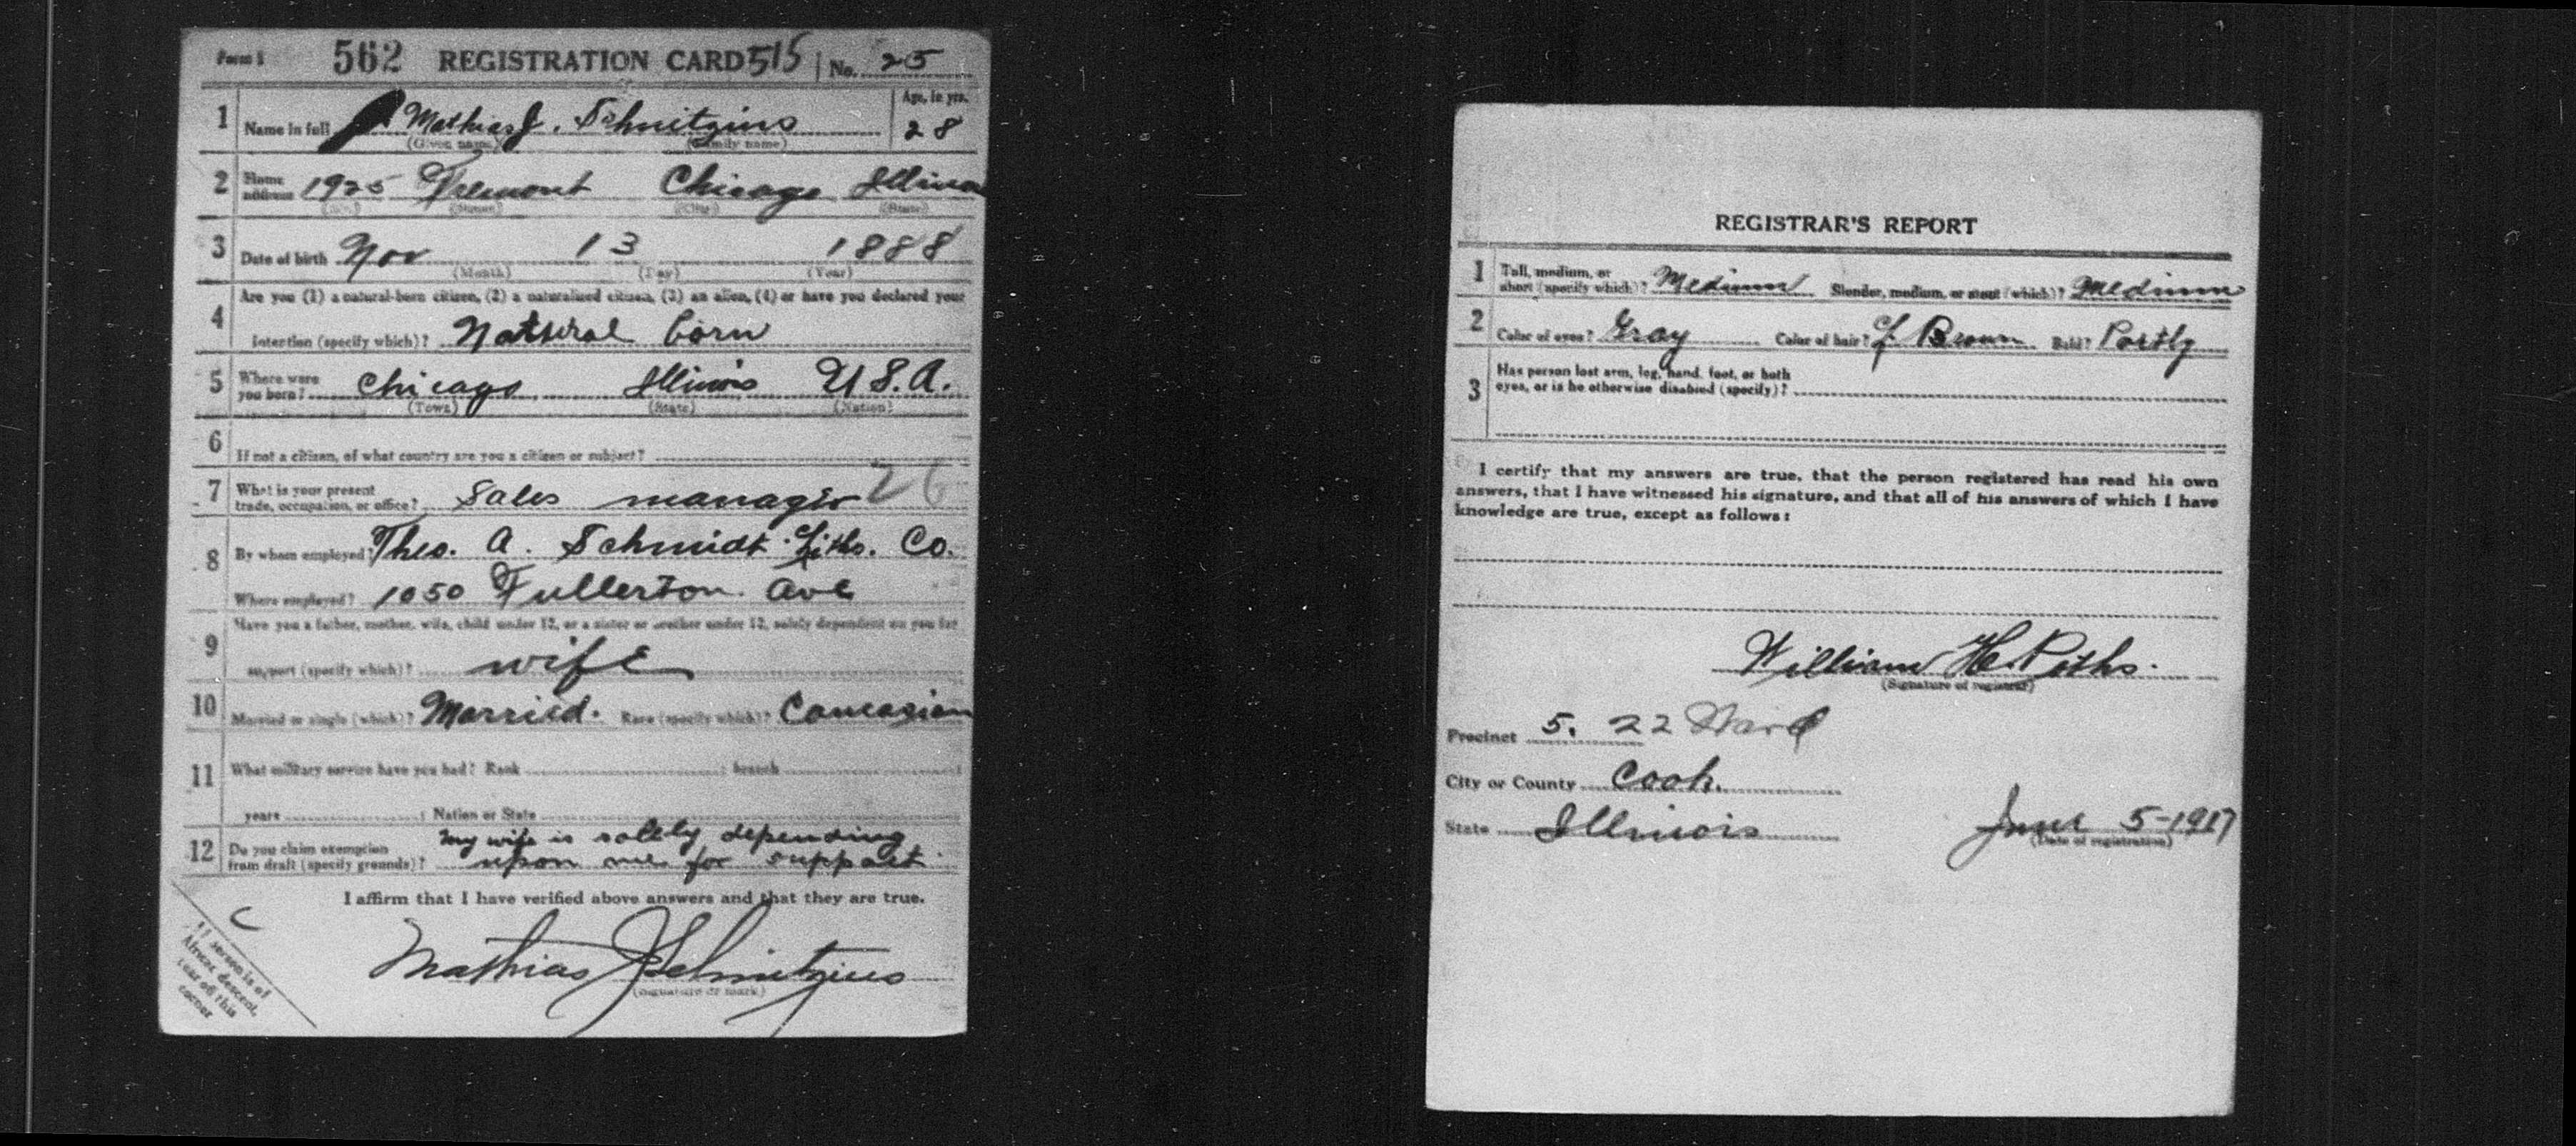 Form 1 562 REGISTRATION CARD 515 No. 25
1 Name in full Mathias J. Schnitzius Age, in yrs. 28
(Given name) (Family name)
2 Home address 1925 Fremont Chicago Illinois
(No.) (Street) (City) (State)
3 Date of birth Nov 13 1888
(Month) (Day) (Year)
Are you (1) a natural-born citizen, (2) a naturalized citizen, (3) an alien, (4) or have you declared your
4 intention (specify which)? Natural born
5 Where were you born? Chicago Illinois U.S.A.
(Town) (State) (Nation)
6 If not a citizen, of what country are you a citizen or subject?
7 What is your present trade, occupation, or office? Sales manager 26
8 By whom employed? Theo. A. Schmidt Litho. Co.
Where employed? 1050 Fullerton Ave
Have you a father, mother, wife, child under 12, or a sister or brother under 12, solely dependent on you for
9 support (specify which)? wife
10 Married or single (which)? Married. Race (specify which)? Caucasian
11 What military service have you had? Rank ; branch ;
years ; Nation or State
12 Do you claim exemption from draft (specify grounds)? My wife is solely depending
upon me for support
I affirm that I have verified above answers and that they are true.
Mathias J Schnitzius
(Signature or mark)
If person is of
African descent,
tear off this
corner
REGISTRAR'S REPORT
1 Tall, medium, or short (specify which)? Medium Slender, medium, or stout (which)? Medium
2 Color of eyes? Gray Color of hair? L Brown Bald? Partly
3 Has person lost arm, leg, hand, foot, or both
eyes, or is he otherwise disabled (specify)?
I certify that my answers are true, that the person registered has read his own
answers, that I have witnessed his signature, and that all of his answers of which I have
knowledge are true, except as follows:
William H.
(Signature of registrar)
Precinct 5. 22 Ward
City or County Cook.
State Illinois June 5-1917
(Date of registration)